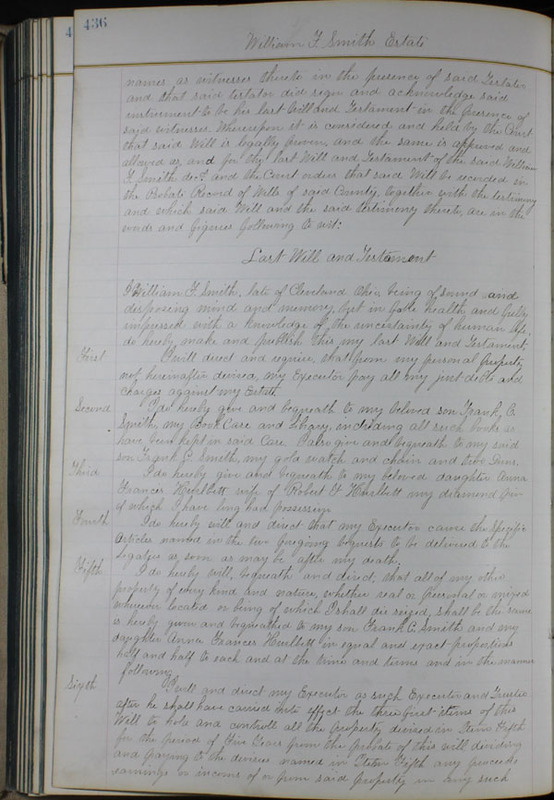 4 436
William F. Smith Estate
names as witnesses thereto in the presence of said Testator
and that said testator did sign and acknowledge said
instrument to be his last Will and Testament in the presence of
said witnesses. Whereupon it is considered and held by the Court
that said Will is legally proven, and the same is approved and
allowed as and for the last Will and Testament of the said William
F. Smith and the Court orders that said Will be recorded in
the Probate Record of Wills of said County, together with the testimony
and which said Will and the said testimony thereto, are in the
words and figures following to wit:
Last Will and Testament
I William F. Smith, late of Cleveland Ohio, being of sound and
disposing mind and memory, but in feeble health, and fully
impressed with a knowledge of the uncertainty of human life,
do hereby make and publish this my last Will and Testament.
First I will direct and require, that from my personal property
not hereinafter devised, my Executor pay all my just debts and
charges against my Estate.
Second I do hereby give and bequeath to my beloved son Frank C.
Smith, my Book Case and Library, including all such books as
have been kept in said Case. I also give and bequeath to my said
son Frank C. Smith, my gold watch and chain and two Guns.
Third I do hereby give and bequeath to my beloved daughter Anna
Frances Hurlbett wife of Robert H Hurlbett my diamond pin
of which I have long had possession
Fourth I do hereby will and direct that my Executor cause the specific
Articles named in the two foregoing bequests to be delivered to the
Legatees as soon as may be after my death.
Fifth I do hereby will, bequeath and direct, that all of my other
property of every kind and nature, whether real or personal or mixed
wherever located or being of which I shall die seized, shall be the same
is hereby given and bequeathed to my son Frank C. Smith and my
daughter Anna Frances Hurlbett in equal and exact proportions
half and half to each and at the time and terms and in the manner
following.
Sixth I will and direct my Executor as such Executor and Trustee
after he shall have carried into effect the three first items of this
Will to hold and controll all the property devised in Item Fifth
for the period of Five Years from the probate of this will dividing
and paying to the devisees named in Item Fifth any proceeds
earnings or income of or from said property in any such